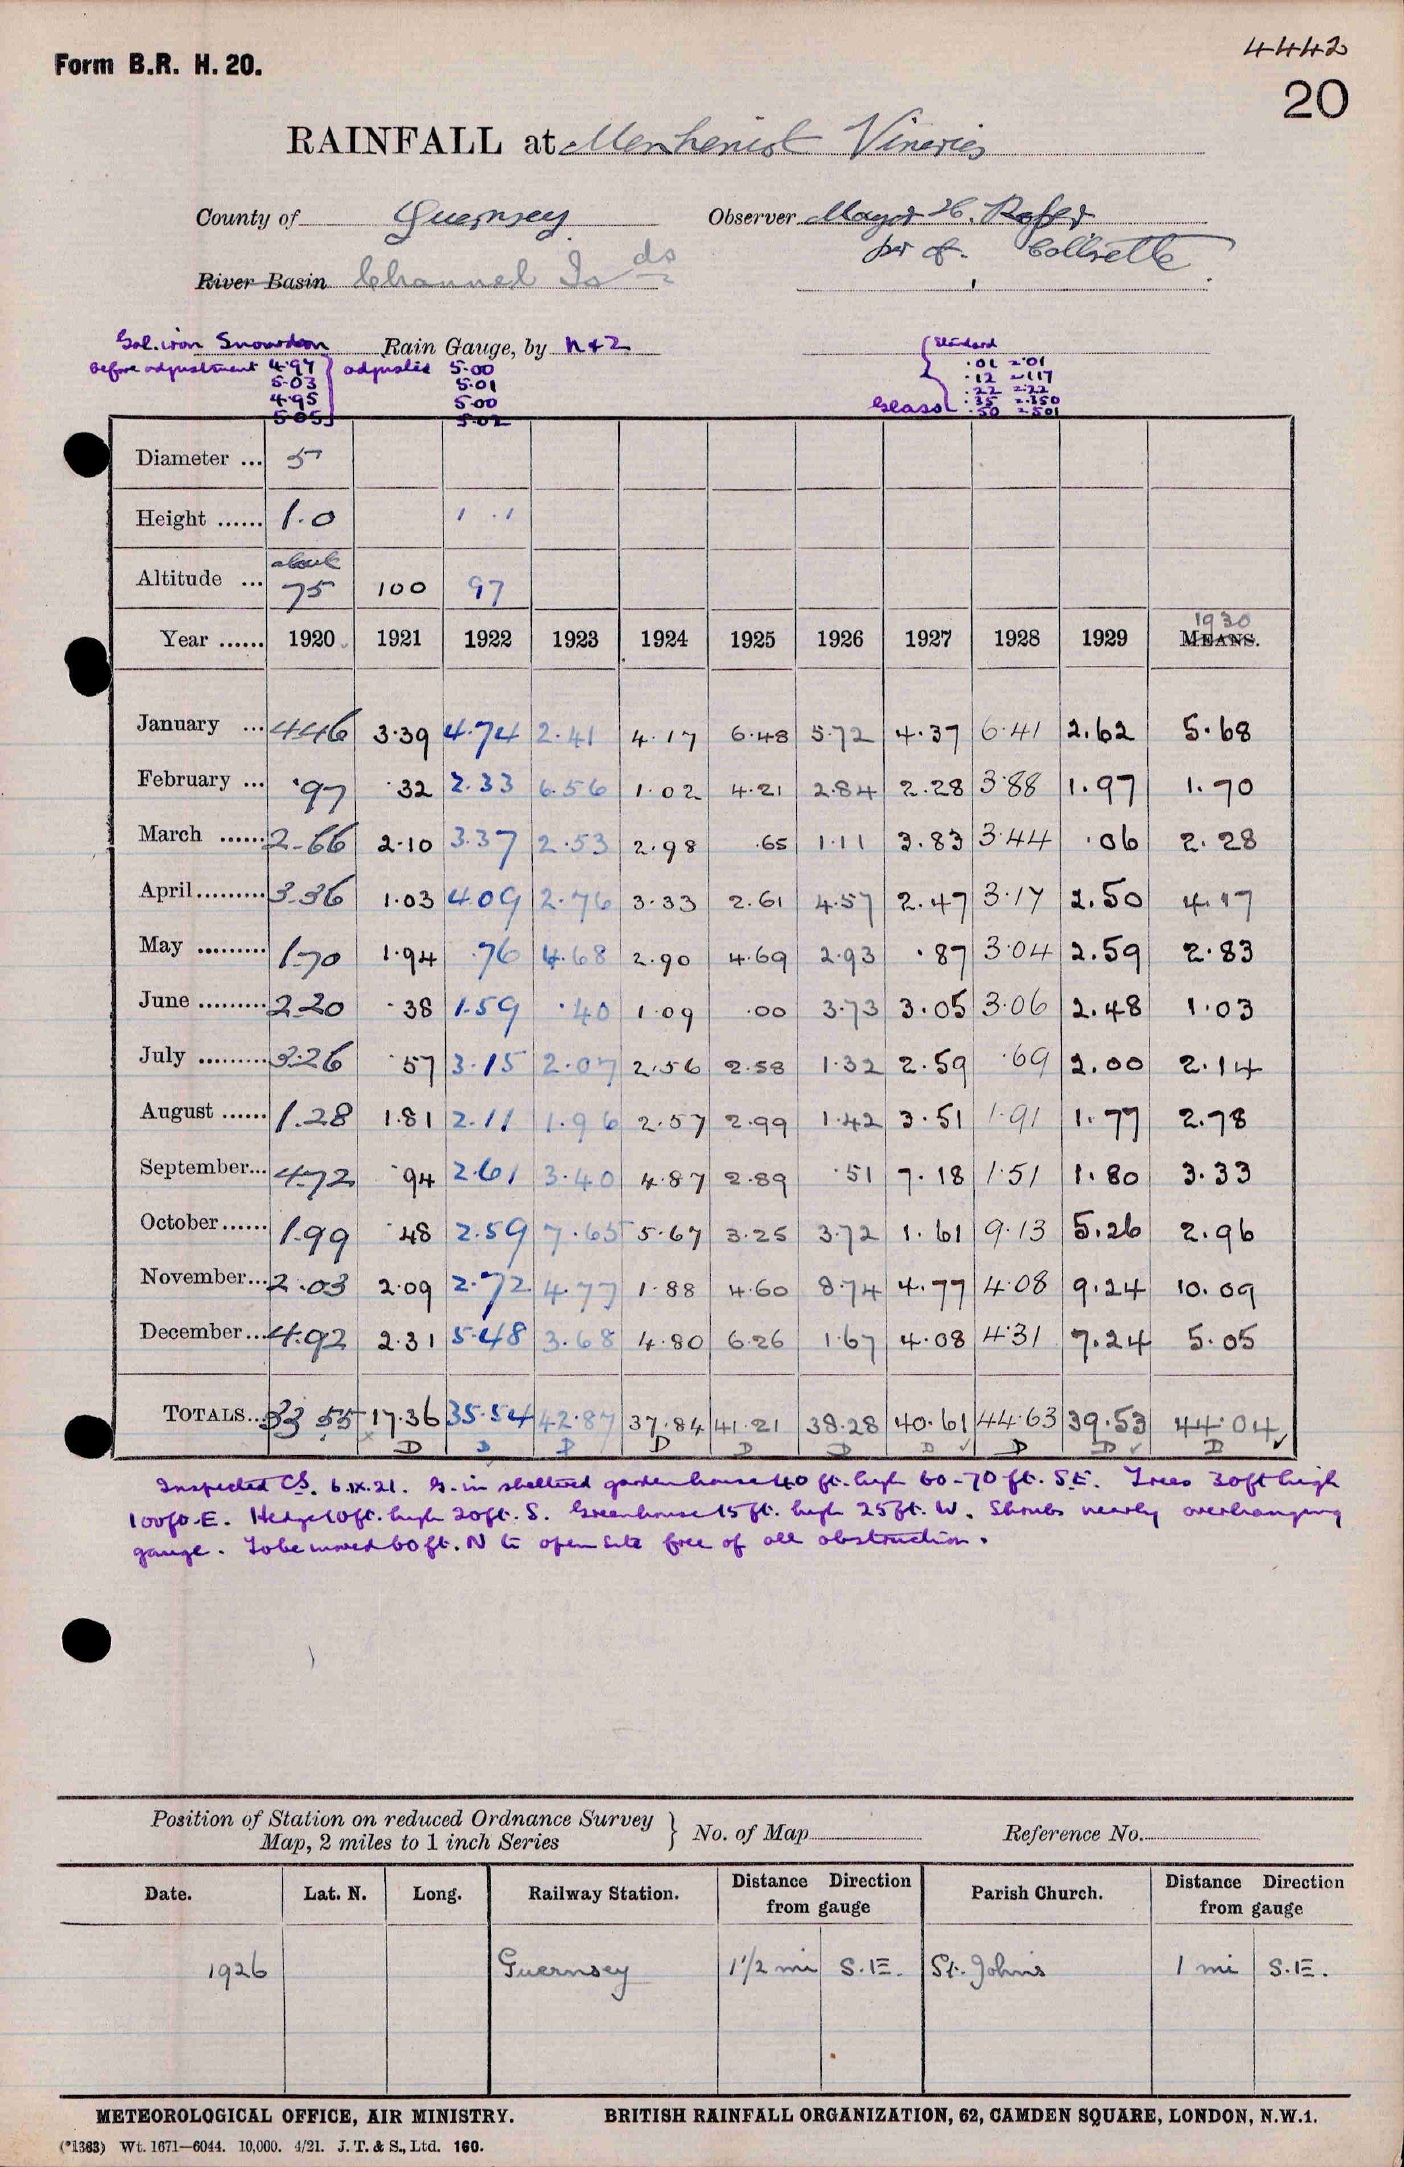 4442
Form B.R. H. 20.
20
RAINFALL at Menheniot Vineries
County of Guernsey Observer Major H.
per A. Collnette
River Basin Channel Is ds
Gal. iron Snowdon Rain Gauge, by N & Z Standard
before adjustment 4.97 adjusted 5.00 .01 = .01
5.03 5.01 .12 = .117
4.95 5.00 .22 = .22
5.05 5.02 .35 = .350
Glass .50 = .501
Diameter ... 5
Height ...... 1.0 1.1
Altitude ... about 75 100 97
1930
Year ...... 1920 1921 1922 1923 1924 1925 1926 1927 1928 1929 MEANS.
January ... 4.46 3.39 4.74 2.41 4.17 6.48 5.72 4.37 6.41 2.62 5.68
February ... .97 .32 2.33 6.56 1.02 4.21 2.84 2.28 3.88 1.97 1.70
March ...... 2.66 2.10 3.37 2.53 2.98 .65 1.11 3.83 3.44 .06 2.28
April......... 3.36 1.03 4.09 2.76 3.33 2.61 4.57 2.47 3.17 2.50 4.17
May ......... 1.70 1.94 .76 4.68 2.90 4.69 2.93 .87 3.04 2.59 2.83
June ......... 2.20 .38 1.59 .40 1.09 .00 3.73 3.05 3.06 2.48 1.03
July ......... 3.26 .57 3.15 2.07 2.56 2.58 1.32 2.59 .69 2.00 2.14
August ...... 1.28 1.81 2.11 1.96 2.57 2.99 1.42 3.51 1.91 1.77 2.78
September... 4.72 .94 2.61 3.40 4.87 2.89 .51 7.18 1.51 1.80 3.33
October...... 1.99 .48 2.59 7.65 5.67 3.25 3.72 1.61 9.13 5.26 2.96
November... 2.03 2.09 2.72 4.77 1.88 4.60 8.74 4.77 4.08 9.24 10.09
December... 4.92 2.31 5.48 3.68 4.80 6.26 1.67 4.08 4.31 7.24 5.05
TOTALS... 33.55 17.36 35.54 42.87 37.84 41.21 38.28 40.61 44.63 39.53 44.04
D D D D D D D D D D
Inspected CS. 6.IX.21. G. in sheltered garden house 40 ft. high 60-70 ft. SE. Trees 30ft high
100ft. E. Hedge 10ft. high 20ft. S. Greenhouse 15ft. high 25ft. W. Shrubs nearly overhanging
gauge. To be moved 60ft. N to open site free of all obstruction.
Position of Station on reduced Ordnance Survey
Map, 2 miles to 1 inch Series } No. of Map Reference No.
Date. Lat. N. Long. Railway Station. Distance Direction from gauge Parish Church. Distance Direction from gauge
1926 Guernsey 1 1/2 mi S.E. St. Johns 1 mi S.E.
METEOROLOGICAL OFFICE, AIR MINISTRY. BRITISH RAINFALL ORGANIZATION, 62, CAMDEN SQUARE, LONDON, N.W.1.
(*1363) Wt. 1671—6044. 10,000. 4/21. J. T. & S., Ltd. 160.